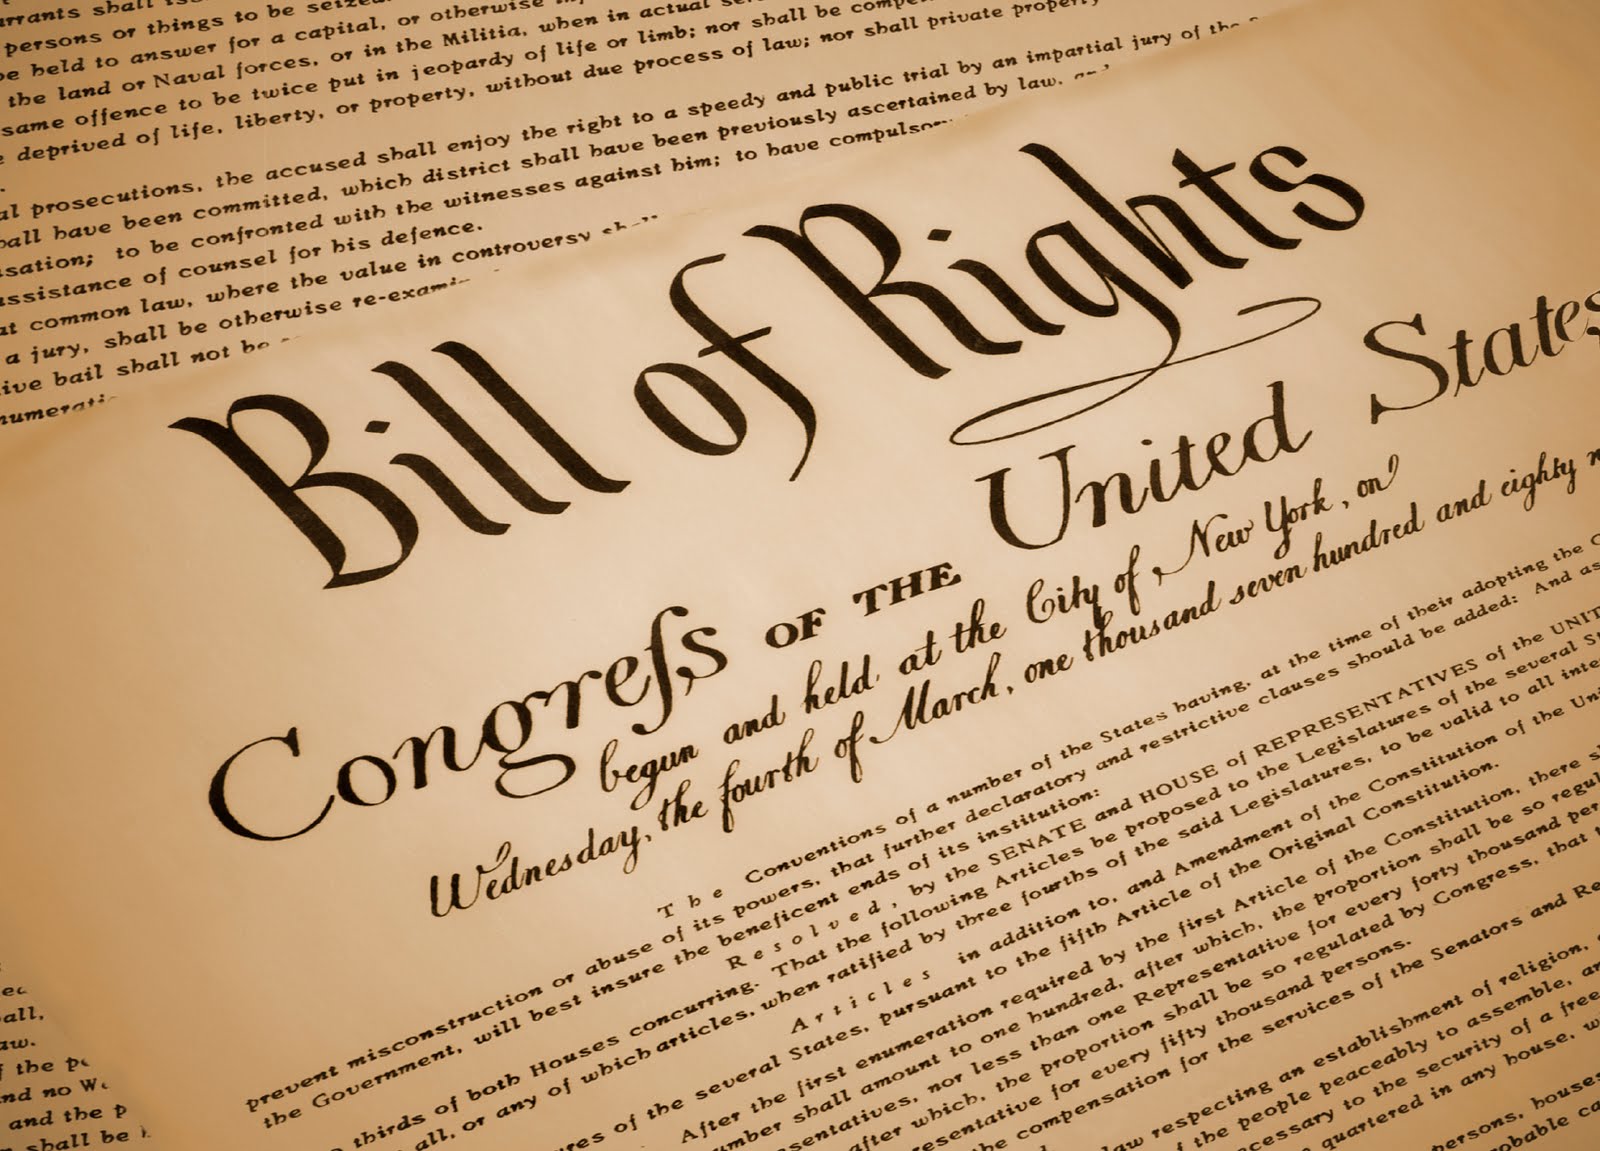 shall
persons or things to be seized.
be held to answer for a capital, or otherwise
the land or Naval forces, or in the Militia, when in actual
same offence to be twice put in jeopardy of life or limb; nor shall be
deprived of life, liberty, or property, without due process of law; nor shall private property
prosecutions, the accused shall enjoy the right to a speedy and public trial by an impartial jury of the
have been committed, which district shall have been previously ascertained by law, and
to be confronted with the witnesses against him; to have
assistance of counsel for his defence.
at common law, where the value in controversy
a jury, shall be otherwise
bail shall not be
Bill of Rights
Congreſs OF THE United States
begun and held at the City of New York, on
Wednesday, the fourth of March, one thousand seven hundred and eighty
The Conventions of a number of the States having, at the time of their adopting the
prevent misconstruction or abuse of its powers, that further declaratory and restrictive clauses should be added: And as
the Government, will best insure the beneficent ends of its institution:
Resolved, by the SENATE and HOUSE of REPRESENTATIVES of the
thirds of both Houses concurring. That the following Articles be proposed to the Legislatures of the several
all, or any of which articles, when ratified by three fourths of the said Legislatures, to be valid to all
Articles in addition to, and Amendment of the Constitution of the
of the several States, pursuant to the fifth Article of the Original Constitution.
After the first enumeration required by the first Article of the Constitution, there
shall amount to one hundred, after which, the proportion shall be so
nor less than one Representative for every forty thousand
after which, the proportion shall be so regulated by Congress, that
for every fifty thousand persons.
the compensation for the services of the Senators and
law respecting an establishment of religion,
of the people peaceably to assemble,
to the security of a free
quartered in any house,
persons,
of the
and no
and the
shall be